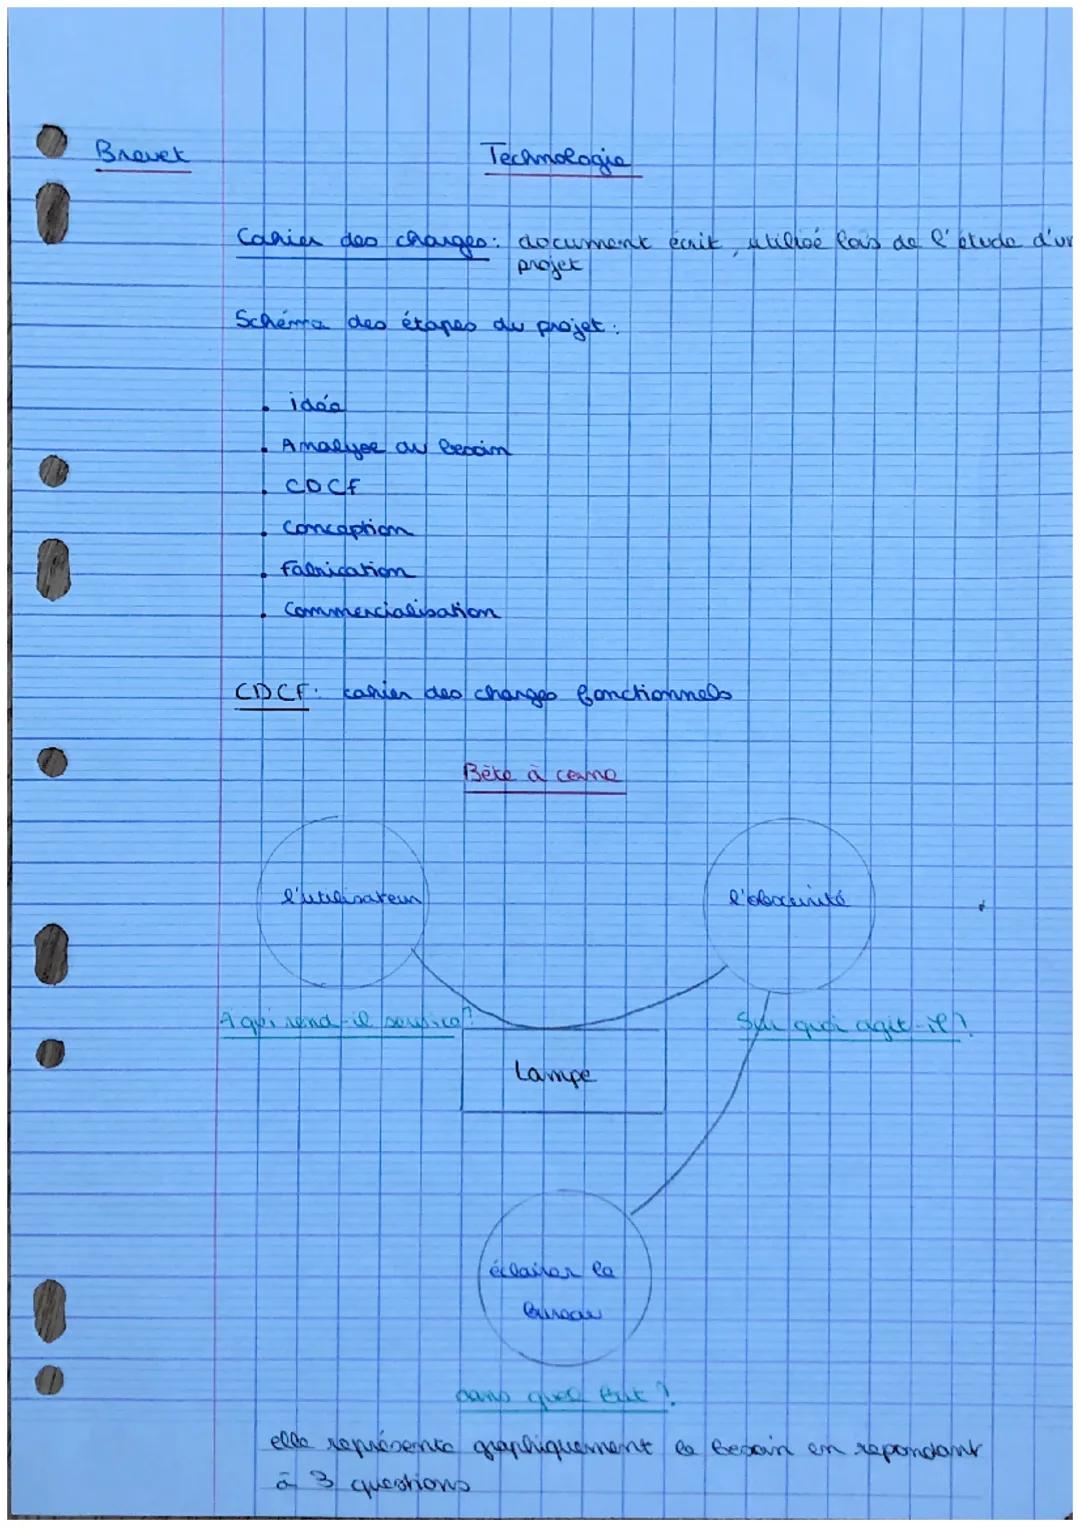 Brevet
Technologie
Cahier des charges : document écrit, utilisé lors de l'étude d'un
projet
Schéma des étapes du projet :
. idée
. Analyse du besoin
. CDCF
. Conception
. Fabrication
. Commercialisation
CDCF : cahier des charges fonctionnels
Bête à corne
l'utilisateur
l'obscurité
A qui rend-il service ?
Sur quoi agit-il ?
Lampe
éclairer le
bureau
Dans quel but ?
elle représente graphiquement le besoin en repondant
à 3 questions